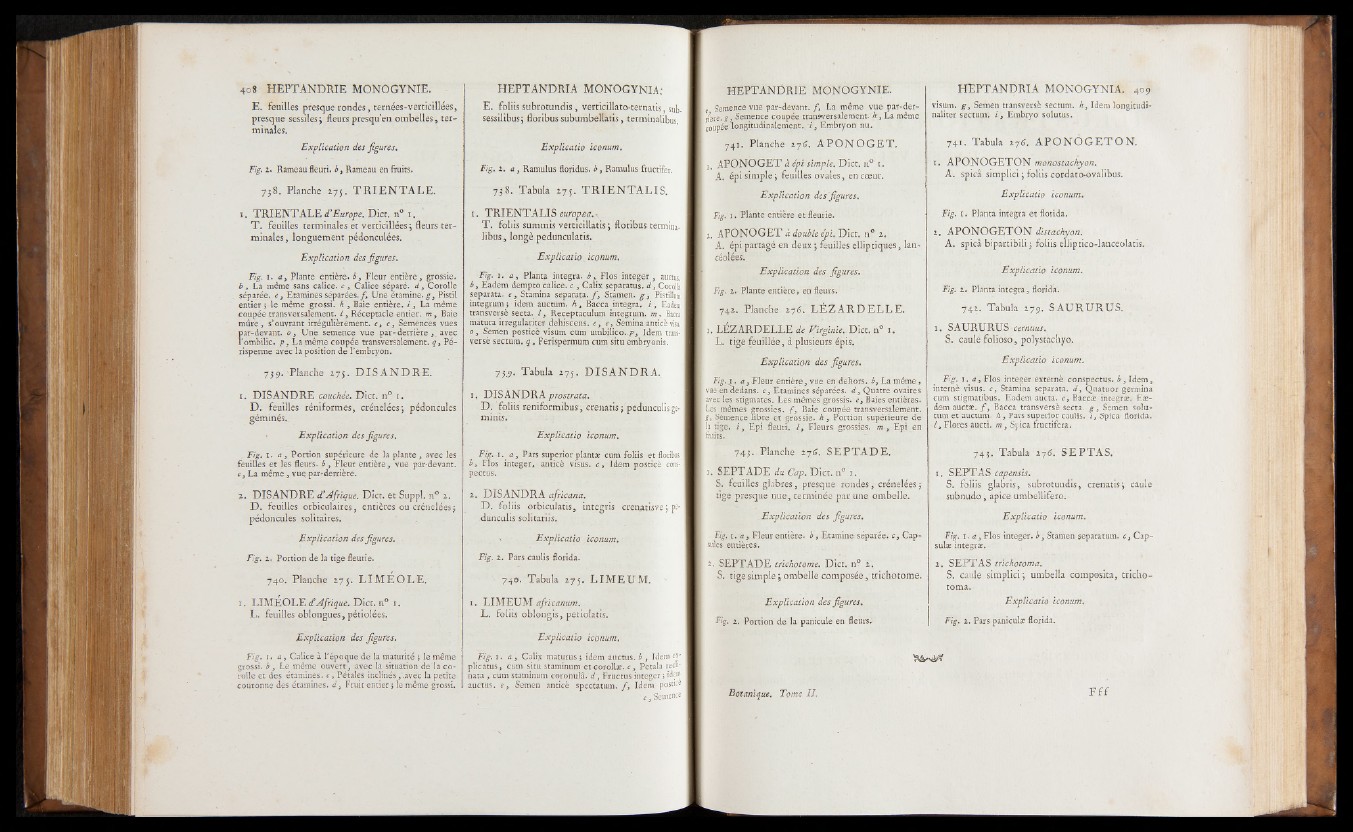 408 HEPTANDRIE MONOGYNIE.
E. feuilles presque rondes, ternées-verticillées,
presque sessiles; fleurs presqu'en ombelles, ter-
minales.
Explication des figures.
Fig. 2. Rameau fleuri. b, Rameau en fruits.
738. Planche 275. TRIENTALE.
1. TRIENTALE d'Europe. Dict. n° 1.
T. feuilles terminales et verticillées; fleurs ter-
minales, longuement pédonculées.
Explication des figures.
Fig. 1. a, Plante entière. b, Fleur entière, grossie.
b, La même sans calice. c, Calice séparé. d, Corolle
séparée. e, Etamines séparées. f, Une étamine. g, Pistil
entier; le même grossi. h, Baie entière. i, La même
coupée transversalement. l, Réceptacle entier. m, Baie
mûre, s'ouvrant irrégulièrement. e, e, Semences vues
par-devant. o, Une semence vue par-derrière, avec
l'ombilic. p, La même coupée transversalement. q, Pé-
risperme avec la position de l'embryon.
739. Planche 275. DISANDRE.
1. DISANDRE couchée. Dict. n° 1.
D. feuilles réniformes, crénelées; pédoncules
géminés.
Explication des figures.
Fig. 1. a, Portion supérieure de la plante, avec les
feuilles et les fleurs. b, Fleur entière, vue par-devant.
c, La même, vue par-derrière.
2. DISANDRE d'Afrique. Dict. et Suppl. n° 2.
D. feuilles orbiculaires, entières ou crénelées;
pédoncules solitaires.
Explication des figures.
Fig. 2. Portion de la tige fleurie.
740. Planche 275. LIMÉOLE.
1. LIMÉOLE d'Afrique. Dict. n° 1.
L. feuilles oblongues, pétiolées.
Explication des figures.
Fig. 1. a, Calice à l'époque de la maturité; le même
grossi. b, Le même ouvert, avec la situation de la co-
rolle et des étamines. c, Pétales inclinés, avec la petite
couronne des étamines. d, Fruit entier; le même grossi.
HEPTANDRIA MONOGYNIA.
E. foliis subrotundis, verticillato-ternatis, sub-
sessilibus; floribus subumbellatis, terminalibus.
Explicatio iconum.
Fig. 2. a, Ramulus floridus. b, Ramulus fructifer.
738. Tabula 275. TRIENTALIS.
1. TRIENTALIS europæa.
T. foliis summis verticillatis; floribus termina-
libus, longè pedunculatis.
Explicatio iconum.
Fig. 1. a, Planta integra. b, Flos integer, auctus.
b, Eadem dempto calice. c, Calix separatus. d, Corolla
separata. e, Stamina separata. f, Stamen. g, Pistillum
integrum; idem auctum. h, Bacca integra. i, Eadem
transversè secta. l, Receptaculum integrum. m, Bacca
matura irregulariter dehiscens. e, e, Semina anticè visa.
o, Semen posticè visum cum umbilico. p, Idem trans-
verse sectum. q, Perispermum cum situ embryonis.
739. Tabula 275. DISANDRA.
1. DISANDRA prostrata.
D. foliis reniformibus, crenatis; pedunculis ge-
minis.
Explicatio iconum.
Fig. 1. a, Pars superior plantæ cum foliis et floribus.
b, Flos integer, anticè visus. c, Idem posticè cons-
pectus.
2. DISANDRA africana.
D. foliis orbiculatis, integris crenatisve; pe-
dunculis solitariis.
Explicatio iconum.
Fig. 2. Pars caulis florida.
740. Tabula 275. LIMEUM.
1. LIMEUM africanum.
L. foliis oblongis, petiolatis.
Explicatio iconum.
Fig. 1. a, Calix maturus; idem auctus. b, Idem ex-
plicatus, cum situ staminum et corollæ. c, Petala recli-
nata, cum staminum coronulâ. d, Fructus integer; idem
auctus. e, Semen anticè spectatum. f, Idem posticè
e, Semence
HEPTANDRIE MONOGYNIE.
e, Semence vue par-devant. f, La même vue par-der-
rière. g, Semence coupée transversalement. h, La même
coupée longitudinalement. i, Embryon nu.
741. Planche 276. APONOGET.
1. APONOGET à épi simple. Dict. n° 1.
A. épi simple; feuilles ovales, en cœur.
Explication des figures.
Fig. 1. Plante entière et fleurie.
2. APONOGET à double épi. Dict. n° 2.
A. épi partagé en deux; feuilles elliptiques, lan-
céolées.
Explication des figures.
Fig. 2. Plante entière, en fleurs.
742. Planche 276. LÉZARDELLE.
1. LÉZARDELLE de Virginie. Dict. n° 1.
L. tige feuillée, à plusieurs épis.
Explication des figures.
Fig. 1. a, Fleur entière, vue en dehors. b, La même,
vue en dedans. c, Etamines séparées. d, Quatre ovaires
avec les stigmates. Les mêmes grossis. e, Baies entières.
Les mêmes grossies. f, Baie coupée transversalement.
g, Semence libre et grossie. h, Portion supérieure de
la tige. i, Epi fleuri. l, Fleurs grossies. m, Epi en
fruits.
743. Planche 276. SEPTADE.
1. SEPTADE du Cap. Dict. n° 1.
S. feuilles glabres, presque rondes, crénelées;
tige presque nue, terminée par une ombelle.
Explication des figures.
Fig. 1. a, Fleur entière. b, Etamine séparée. c, Cap-
sules entières.
2. SEPTADE trichotome. Dict. n° 2.
S. tige simple; ombelle composée, trichotome.
Explication des figures.
Fig. 2. Portion de la panicule en fleurs.
Botanique. Tome II.
HEPTANDRIA MONOGYNIA. 409
visum. g, Semen transversè sectum. h, Idem longitudi-
naliter sectum. i, Embryo solutus.
741. Tabula 276. APONOGETON.
1. APONOGETON monostachyon.
A. spicâ simplici; foliis cordato-ovalibus.
Explicatio iconum.
Fig. 1. Planta integra et florida.
2. APONOGETON distachyon.
A. spicâ bipartibili; foliis elliptico-lanceolatis.
Explicatio iconum.
Fig. 2. Planta integra, florida.
742. Tabula 279. SAURURUS.
1. SAURURUS cernuus.
S. caule folioso, polystachyo.
Explicatio iconum.
Fig. 1. a, Flos integer externè conspectus. b, Idem,
internè visus. c, Stamina separata. d, Quatuor germina
cum stigmatibus. Eadem aucta. e, Baccæ integræ. Eæ-
dem auctæ. f, Bacca transversè secta. g, Semen solu-
tum et auctum. h, Pars superior caulis. i, Spica florida.
l, Flores aucti. m, Spica fructifera.
743. Tabula 276. SEPTAS.
1. SEPTAS capensis.
S. foliis glabris, subrotundis, crenatis; caule
subnudo, apice umbellifero.
Explicatio iconum.
Fig. 1. a, Flos integer. b, Stamen separatum. c, Cap-
sulæ integræ.
2. SEPTAS trichotoma.
S. caule simplici; umbella composita, tricho-
toma.
Explicatio iconum.
Fig. 2. Pars paniculæ florida.
Fff